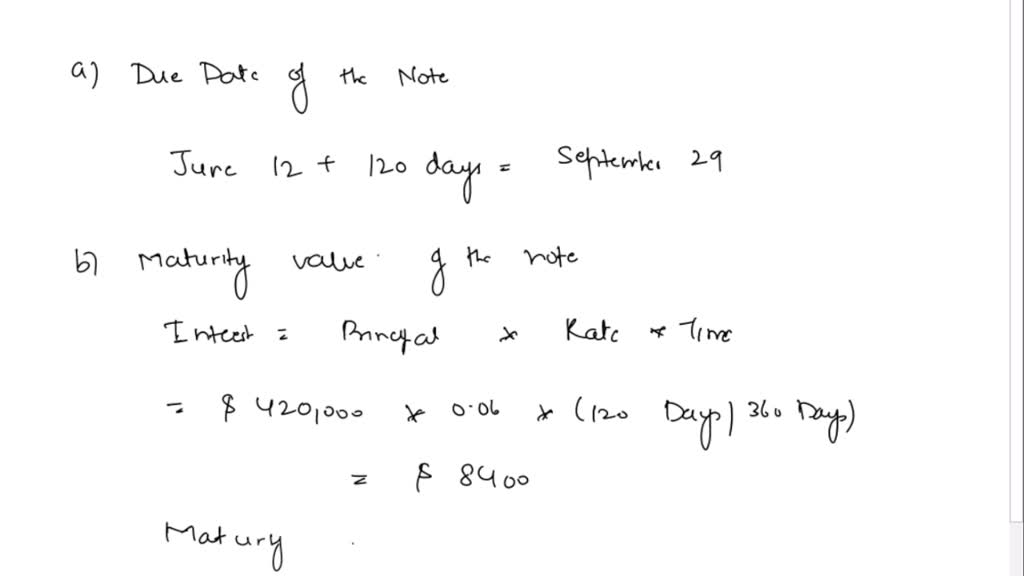 a) Due Date of the Note
June 12 + 120 days = September 29
b) Maturity value of the note
Interest = Principal * Rate * Time
= $ 420,000 * 0.06 * (120 Days / 360 Days)
= $ 8400
Matury